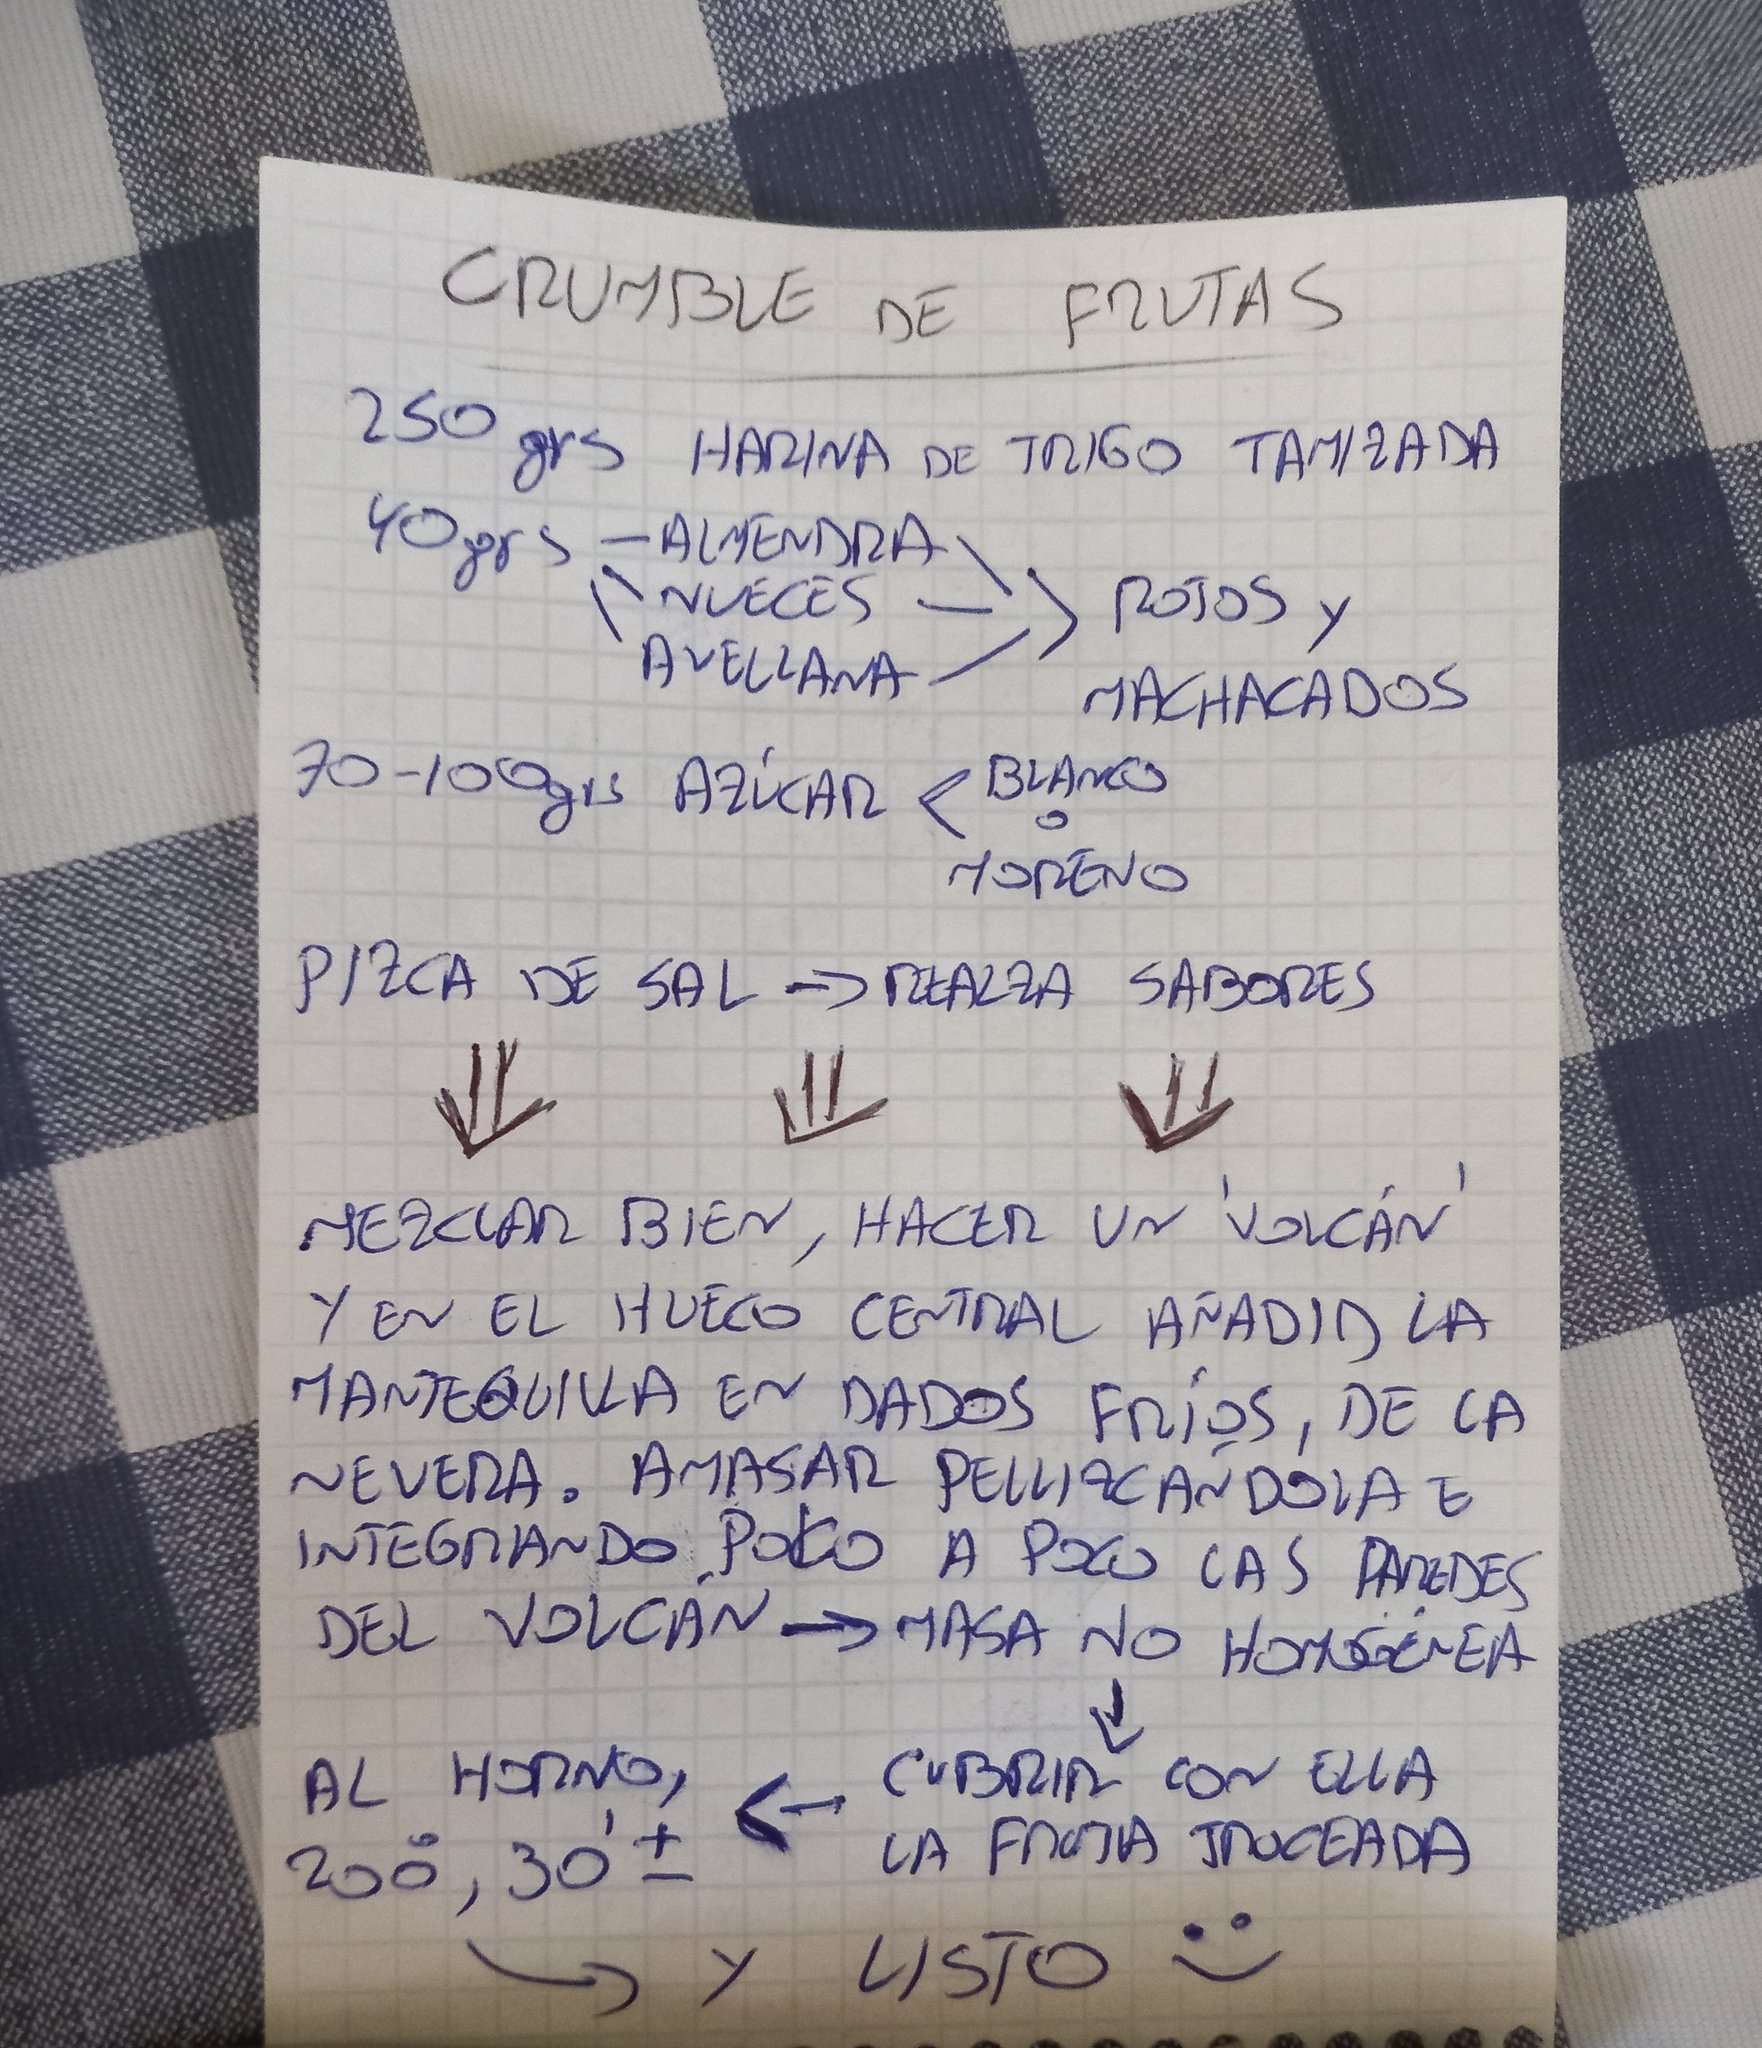 CRUMBLE DE FRUTAS
250 grs HARINA DE TRIGO TAMIZADA
40 grs - ALMENDRA
NUECES
AVELLANA
ROTOS Y
MACHACADOS
70-100 grs AZÚCAR < BLANCO
O
MORENO
PIZCA DE SAL → REALZA SABORES
MEZCLAR BIEN, HACER UN 'VOLCÁN'
Y EN EL HUECO CENTRAL AÑADIR LA
MANTEQUILLA EN DADOS FRÍOS, DE LA
NEVERA. AMASAR PELLIZCÁNDOLA E
INTEGRANDO POCO A POCO LAS PAREDES
DEL VOLCÁN → MASA NO HOMOGÉNEA
CUBRIR CON ELLA
LA FRUTA TROCEADA
AL HORNO,
200º, 30' ±
→ Y LISTO